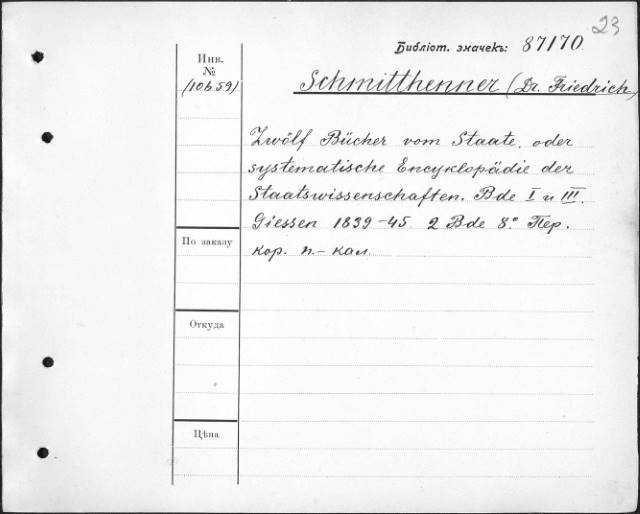 23
Библіот. значекъ: 87170.
Инв.
№
(10659)
Schmitthenner (Dr. Friedrich)
Zwölf Bücher vom Staate, oder
systematische Encyklopädie der
Staatswissenschaften. Bde I u III.
Giessen 1839-45. 2 Bde 8.° Пер.
кор. п.- кал.
По заказу
Откуда
Цѣна